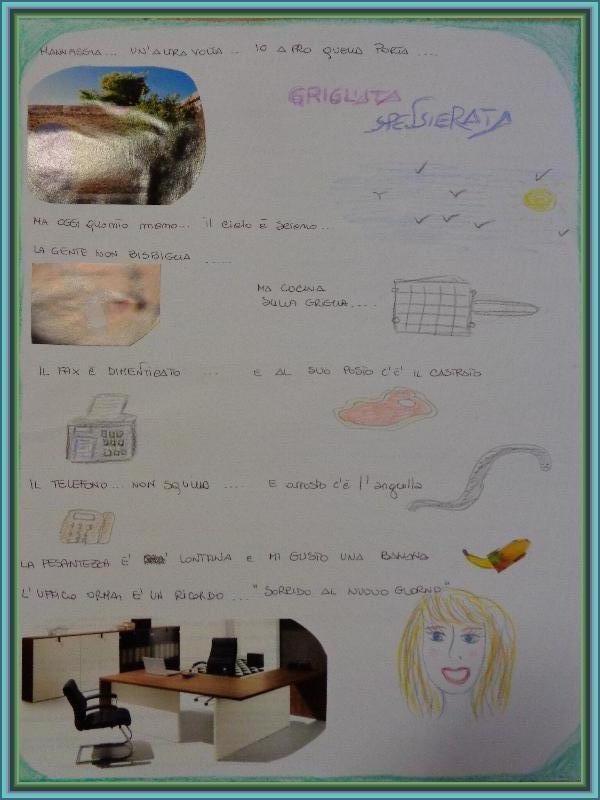 MANNAGGIA... UN'ALTRA VOLTA... IO APRO QUELLA PORTA....
GRIGLIATA
SPENSIERATA
MA OGGI quanto meno... il cielo è sereno...
LA GENTE NON BISBIGLIA .....
MA CUCINA
SULLA GRIGLIA....
IL FAX È DIMENTICATO ... E AL SUO POSTO C'È IL CASTRATO
IL TELEFONO... NON SQUILLA .... E arrosto c'è l'anguilla
LA PESANTEZZA E' LONTANA E MI GUSTO UNA BANANA
L'UFFICIO ORMAI E' UN RICORDO ... "SORRIDO AL NUOVO GIORNO"